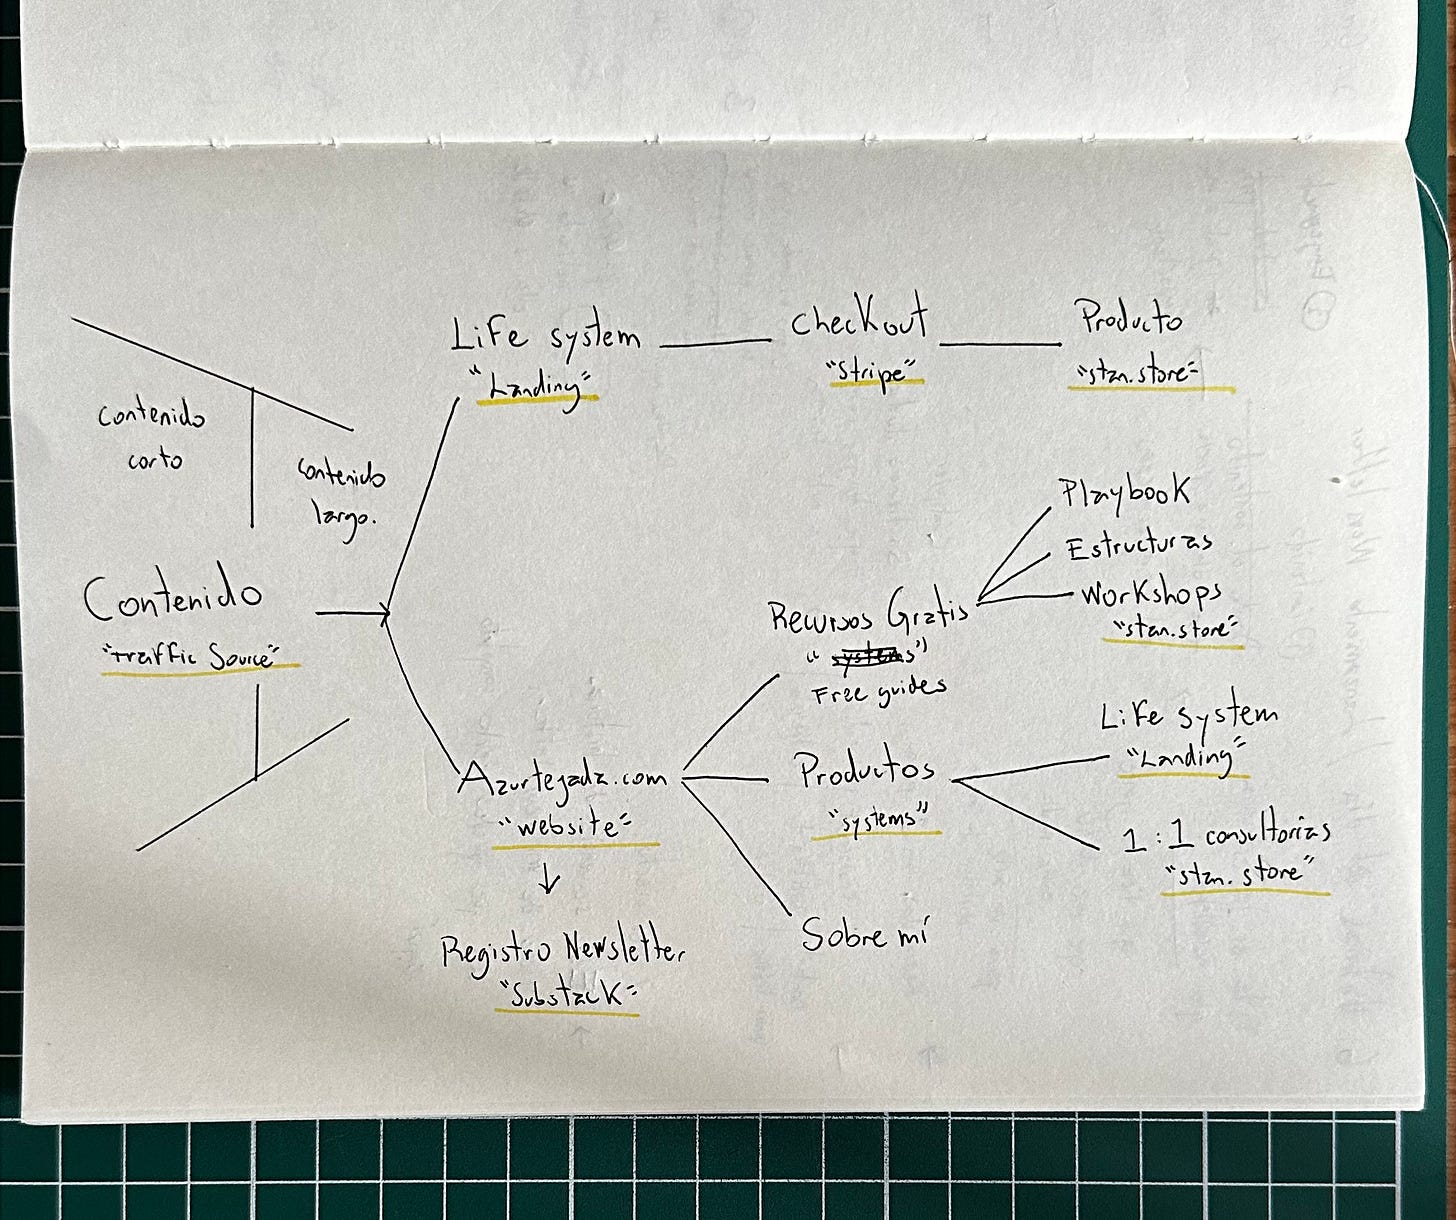 Contenido
corto
Contenido
largo.
Contenido
"traffic Source"
Life system
"Landing"
checkout
"Stripe"
Producto
"stan.store"
Azurtegada.com
"website"
↓
Registro Newsletter
"Substack"
Recursos Gratis
"systems"
Free guides
Playbook
Estructuras
Workshops
"stan.store"
Productos
"systems"
Life system
"Landing"
1:1 consultorías
"stan.store"
Sobre mí